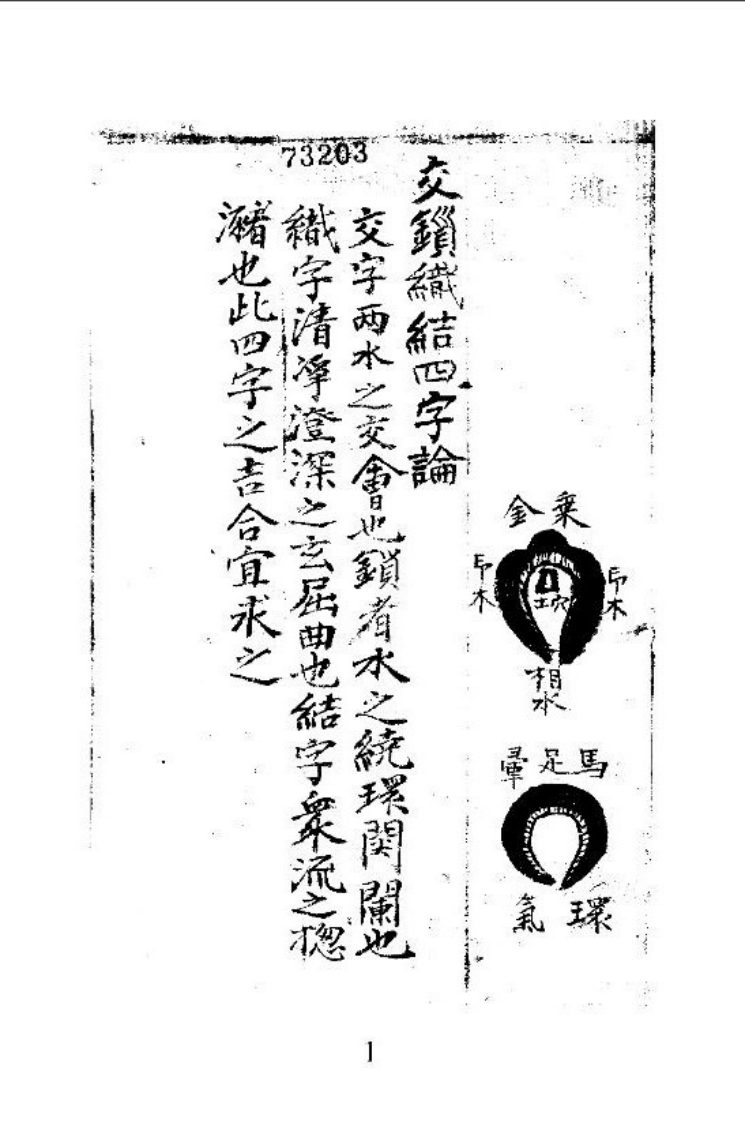 73203
乗金
印木
穴土
印木
相水
馬足暈
環氣
交鎖織結四字論
交字两水之交會也鎖者水之繞環関闌也
織字清凈澄深之玄屈曲也結字衆流之揔
瀦也此四字之吉合宜求之
1